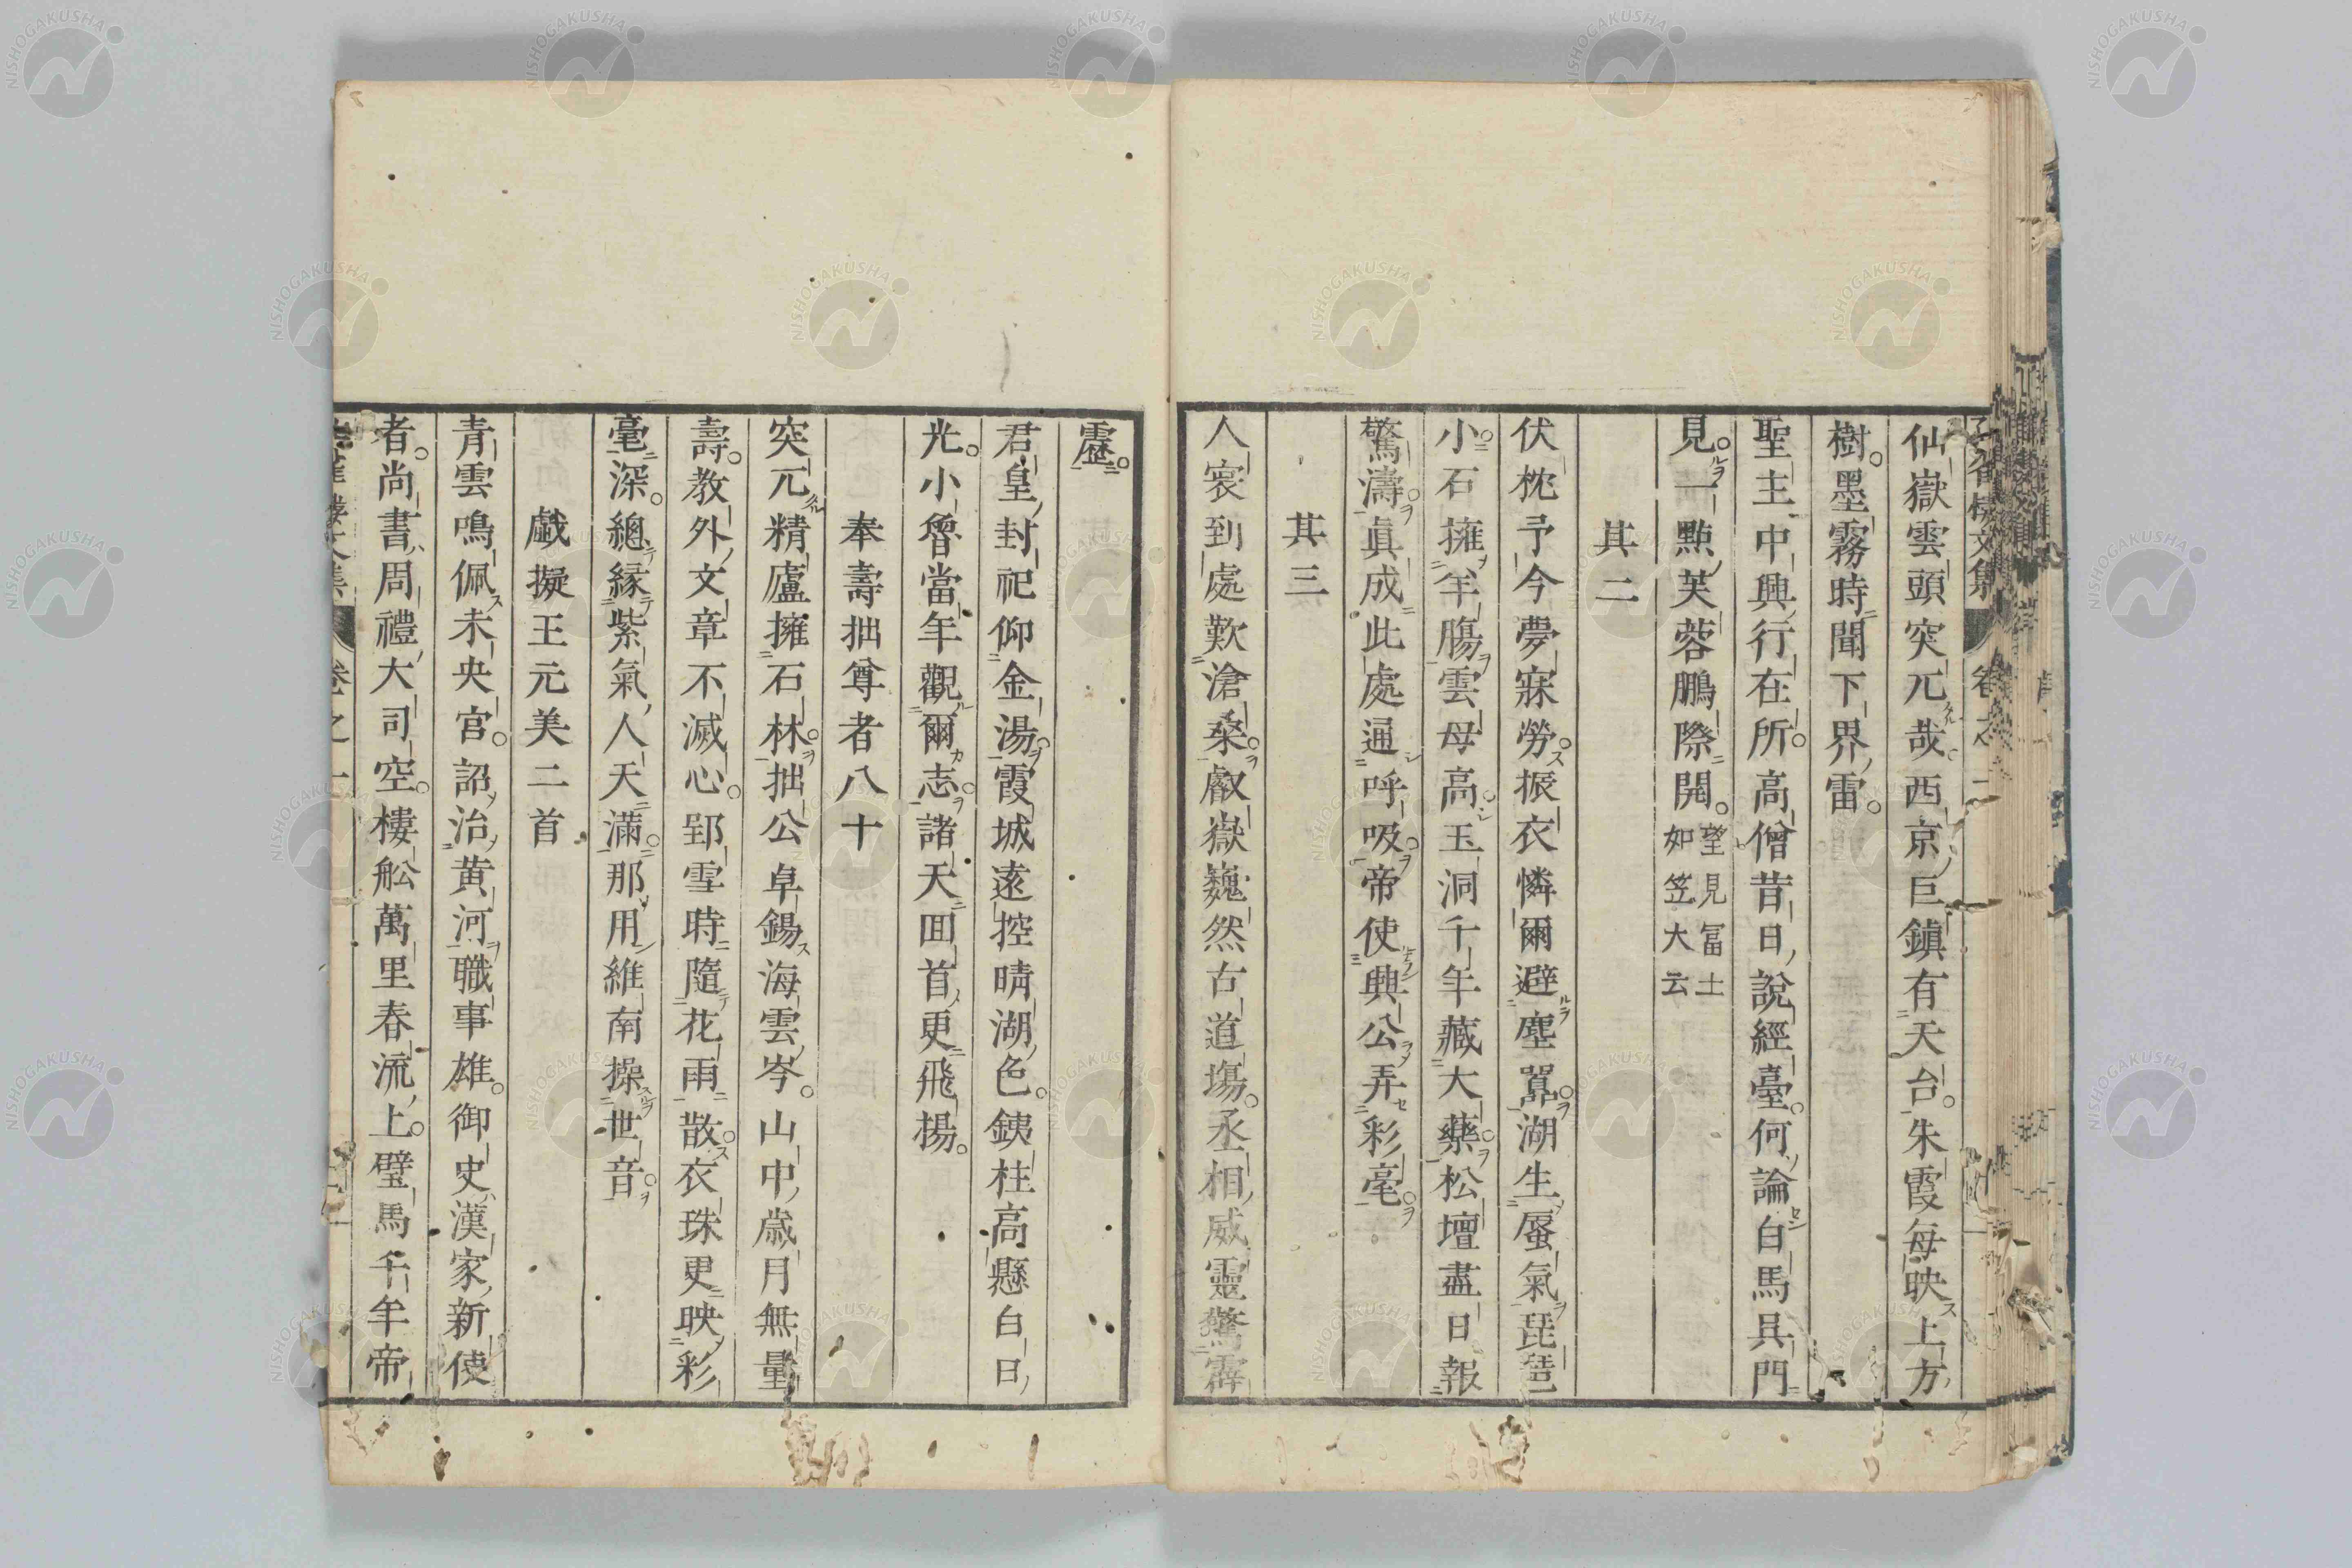 仙嶽雲頭突兀哉西京巨鎮有天台朱霞每映上方
樹墨霧時聞下界雷
聖主中興行在所高僧昔日說經臺何論白馬具門
見一點芙蓉鵬際開望見冨士如笠大云
其二
伏枕予今夢寐勞振衣憐爾避塵囂湖生蜃氣琵琶
小石擁羊腸雲母高玉洞千年藏大藥松壇盡日報
驚濤真成此處通呼吸帝使興公弄彩毫
其三
人寰到處歎滄桑叡嶽巍然古道塲丞相威靈驚霹
靂
君皇封祀仰金湯霞城遠控晴湖色銕柱高懸白日
光小魯當年觀爾志諸天回首更飛揚
奉壽拙尊者八十
突兀精廬擁石林拙公卓錫海雲岑山中歲月無量
壽教外文章不滅心郢雪時隨花雨散衣珠更映彩
毫深總緣紫氣人天滿那用維南操世音
戲擬王元美二首
青雲鳴佩未央宮詔治黃河職事雄御史漢家新使
者尚書周禮大司空樓舩萬里春流上璧馬千年帝
NISHOGAKUSHA